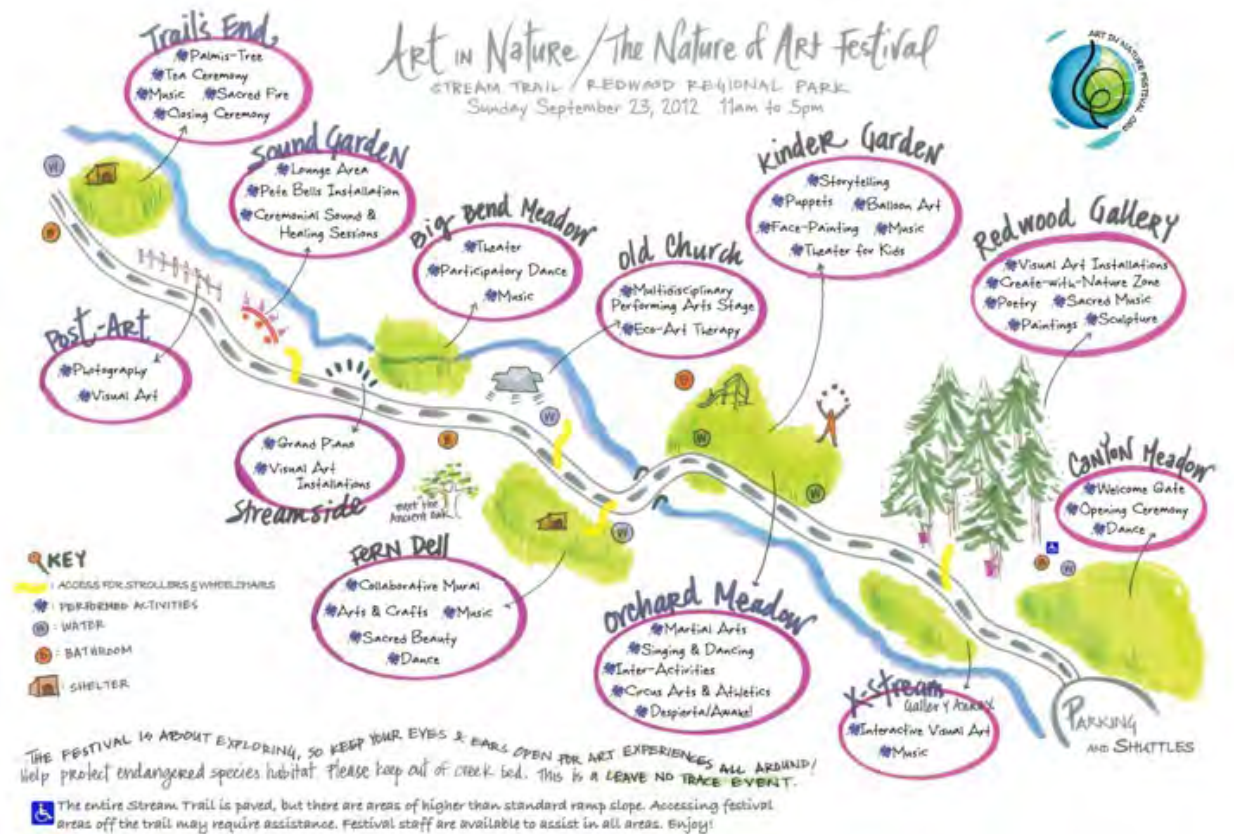 Art in Nature / The Nature of Art Festival
STREAM TRAIL / REDWOOD REGIONAL PARK
Sunday September 23, 2012 11am to 5pm
ART IN NATURE FESTIVAL.ORG
Trail's End
Palmis-Tree
Tea Ceremony
Music Sacred Fire
Closing Ceremony
Sound Garden
Lounge Area
Pete Bells Installation
Ceremonial Sound &
Healing Sessions
Big Bend Meadow
Theater
Participatory Dance
Music
Old Church
Multidisciplinary
Performing Arts Stage
Eco-Art Therapy
Kinder Garden
Storytelling
Puppets Balloon Art
Face-Painting Music
Theater for Kids
Redwood Gallery
Visual Art Installations
Create-with-Nature Zone
Poetry Sacred Music
Paintings Sculpture
Canyon Meadow
Welcome Gate
Opening Ceremony
Dance
Post-Art
Photography
Visual Art
Grand Piano
Visual Art
Installations
Streamside
Meet the
Ancient Oak
Fern Dell
Collaborative Mural
Arts & Crafts Music
Sacred Beauty
Dance
Orchard Meadow
Martial Arts
Singing & Dancing
Inter-Activities
Circus Arts & Athletics
Despierta/Awake!
X-stream
Gallery Annex
Interactive Visual Art
Music
PARKING
AND SHUTTLES
W
B
W
B
B
W
W
W
W
B
W
KEY
: ACCESS FOR STROLLERS & WHEELCHAIRS
: PERFORMED ACTIVITIES
W : WATER
B : BATHROOM
: SHELTER
THE FESTIVAL IS ABOUT EXPLORING, SO KEEP YOUR EYES & EARS OPEN FOR ART EXPERIENCES ALL AROUND!
Help protect endangered species habitat. Please keep out of creek bed. This is a LEAVE NO TRACE EVENT.
The entire Stream Trail is paved, but there are areas of higher than standard ramp slope. Accessing festival
areas off the trail may require assistance. Festival staff are available to assist in all areas. Enjoy!